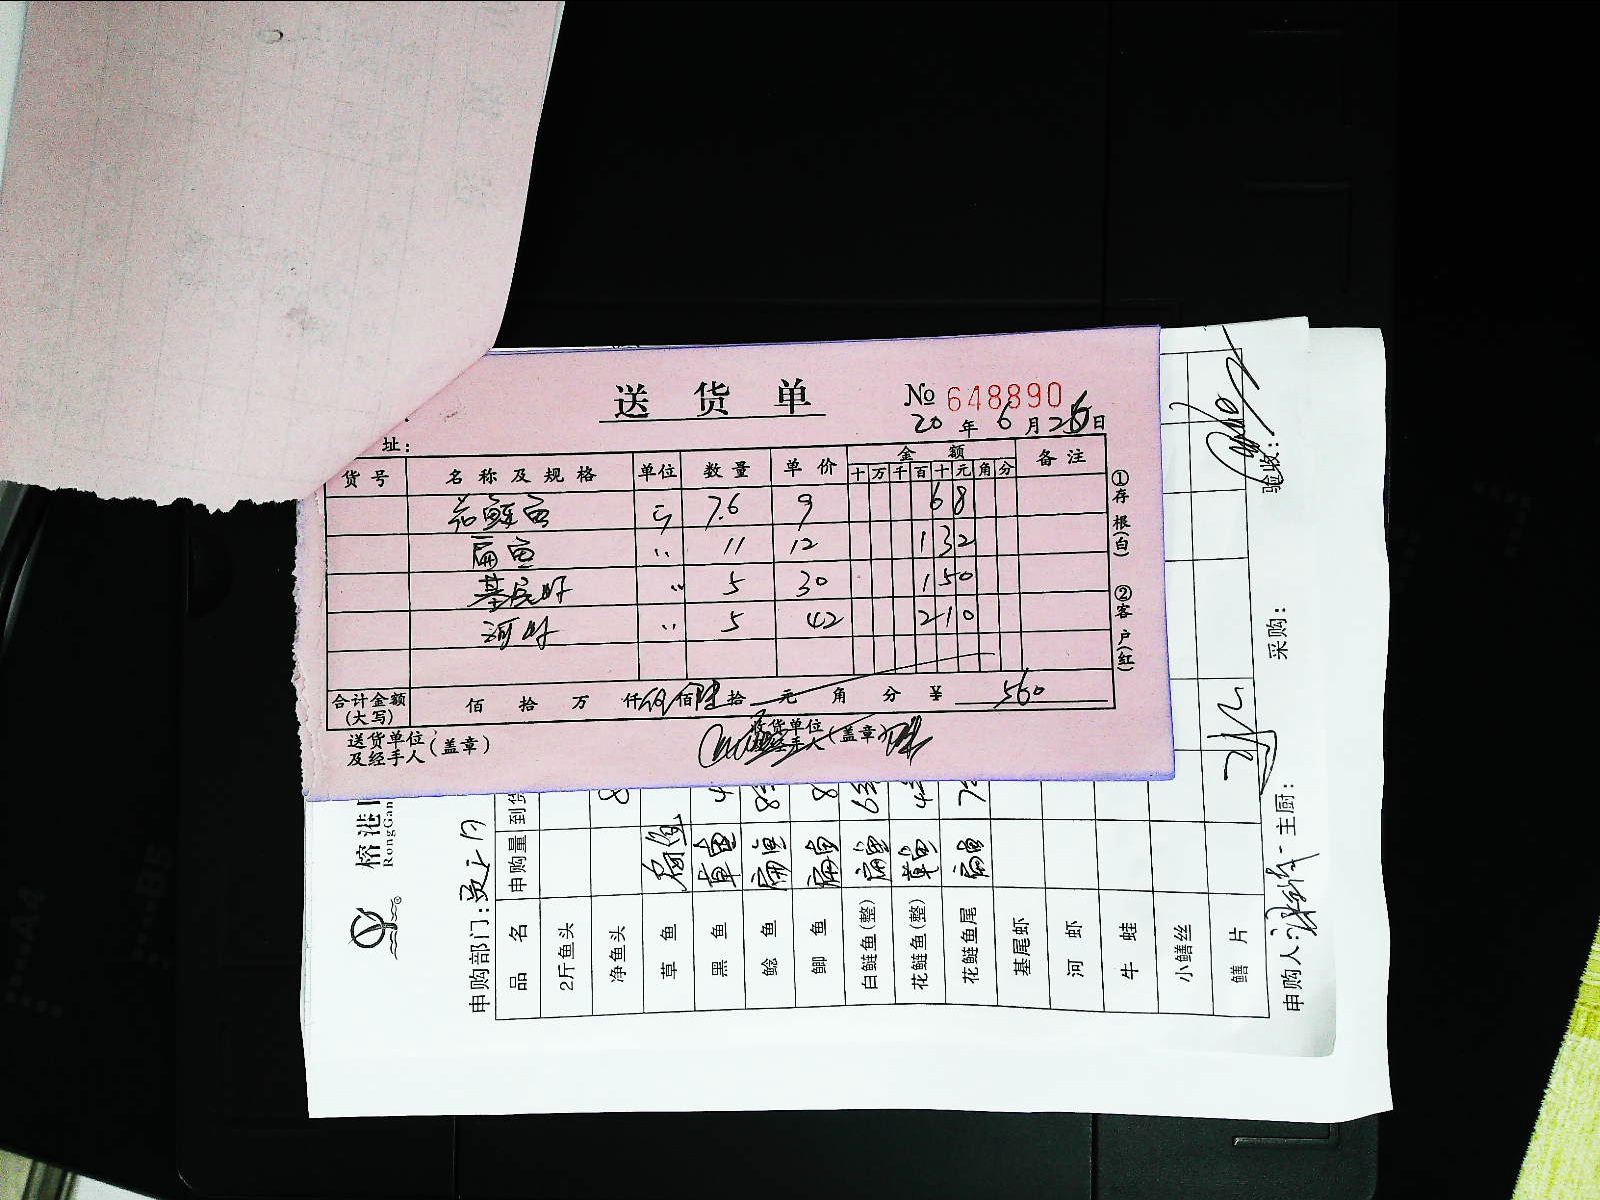 送货单 № 648890
20 年 6 月 26 日
址：
货号 名称及规格 单位 数量 单价 金额 备注
十 万 千 百 十 元 角 分
花鲢鱼 斤 7.6 9 68
扁鱼 〃 11 12 132
基尾虾 〃 5 30 150
河虾 〃 5 42 210
合计金额(大写) 佰 拾 万 仟 伍 佰 陆 拾 元 角 分 ¥ 560
送货单位及经手人(盖章) 收货单位及经手人(盖章)
①存根(白) ②客户(红)
榕港
RongGan
申购部门:
品名 申购量 到货
2斤鱼头
净鱼头 8
草鱼
黑鱼 草鱼 4
鲶鱼 扁鱼
鲫鱼 扁鱼 8
白鲢鱼(整) 扁鱼
花鲢鱼(整) 草鱼
花鲢鱼尾 扁鱼
基尾虾
河虾
牛蛙
小鳝丝
鳝片
申购人: 主厨: 采购: 验收: